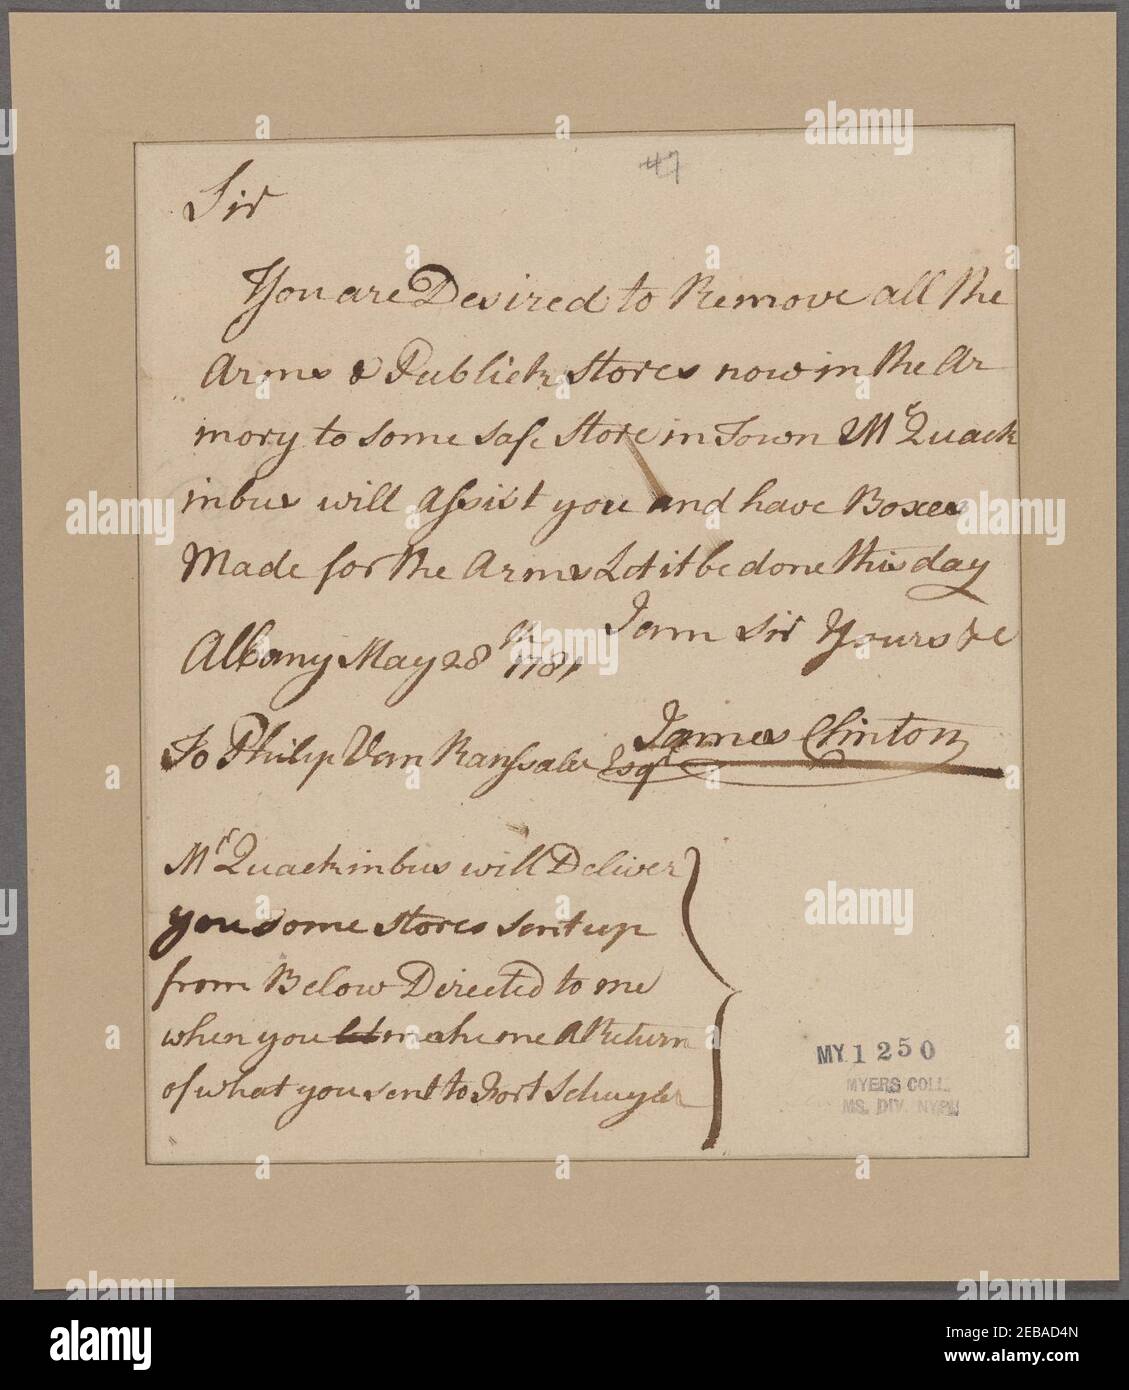 #7
Sir
You are Desired to Remove all the
Arms & Publick Stores now in the Ar
mory to some safe Store in Town Mr Quack
inbus will assist you and have Boxes
Made for the Arms Let it be done this day
I am Sir Yours &c
Albany May 28th 1781
James Clinton
To Philip Van Ranssaler Esqr
Mr Quackinbus will Deliver
you some stores sent up
from Below Directed to me
when you let make me A Return
of what you sent to Fort Schuyler
MY 1250
MYERS COLL.
MS. DIV. NYPL
alamy
Image ID: 2EBAD4N
www.alamy.com